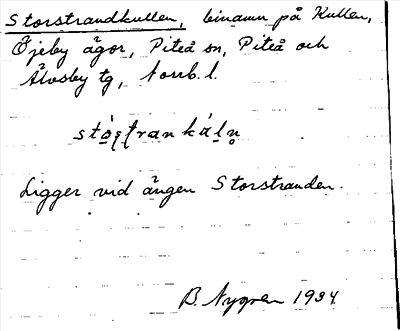 Storstrandkullen, binamn på Kullen,
Öjeby ägor, Piteå sn, Piteå och
Älvsby tg, Norrb. l.
Ligger vid ängen Storstranden.
B. Nygren 1934.